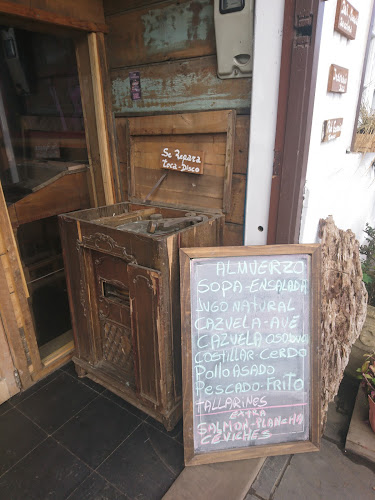 Se Repara
Toca-Disco
ALMUERZO
SOPA-ENSALADA
JUGO NATURAL
CAZUELA-AVE
CAZUELA OSOBUCO
COSTILLAR CERDO
POLLO ASADO
PESCADO-FRITO
TALLARINES
EXTRA
SALMON-PLANCHA
CEVICHES